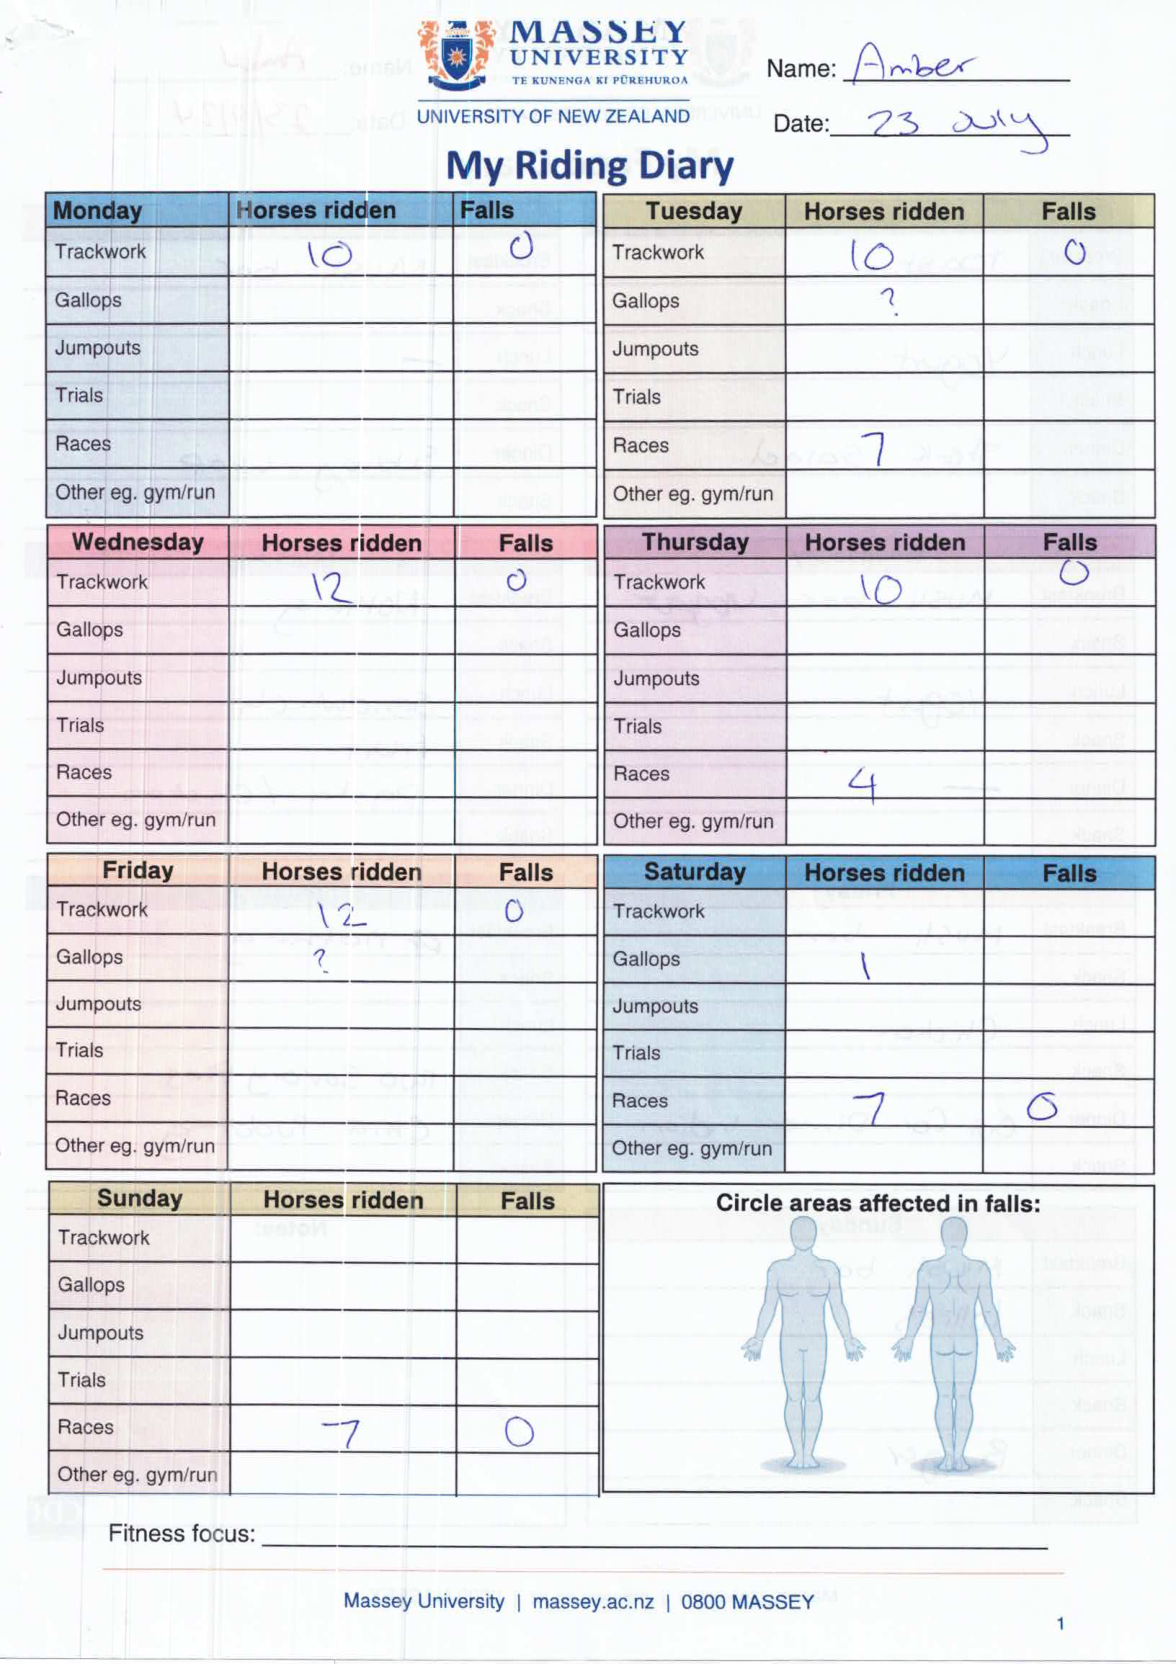 MASSEY
UNIVERSITY
TE KUNENGA KI PŪREHUROA
UNIVERSITY OF NEW ZEALAND
Name: Amber
Date: 23 July
My Riding Diary
Monday Horses ridden Falls
Trackwork 10 0
Gallops
Jumpouts
Trials
Races
Other eg. gym/run
Tuesday Horses ridden Falls
Trackwork 10 0
Gallops ?
Jumpouts
Trials
Races 7
Other eg. gym/run
Wednesday Horses ridden Falls
Trackwork 12 0
Gallops
Jumpouts
Trials
Races
Other eg. gym/run
Thursday Horses ridden Falls
Trackwork 10 0
Gallops
Jumpouts
Trials
Races 4
Other eg. gym/run
Friday Horses ridden Falls
Trackwork 12 0
Gallops ?
Jumpouts
Trials
Races
Other eg. gym/run
Saturday Horses ridden Falls
Trackwork
Gallops 1
Jumpouts
Trials
Races 7 0
Other eg. gym/run
Sunday Horses ridden Falls
Trackwork
Gallops
Jumpouts
Trials
Races 7 0
Other eg. gym/run
Circle areas affected in falls:
Fitness focus:
Massey University | massey.ac.nz | 0800 MASSEY
1